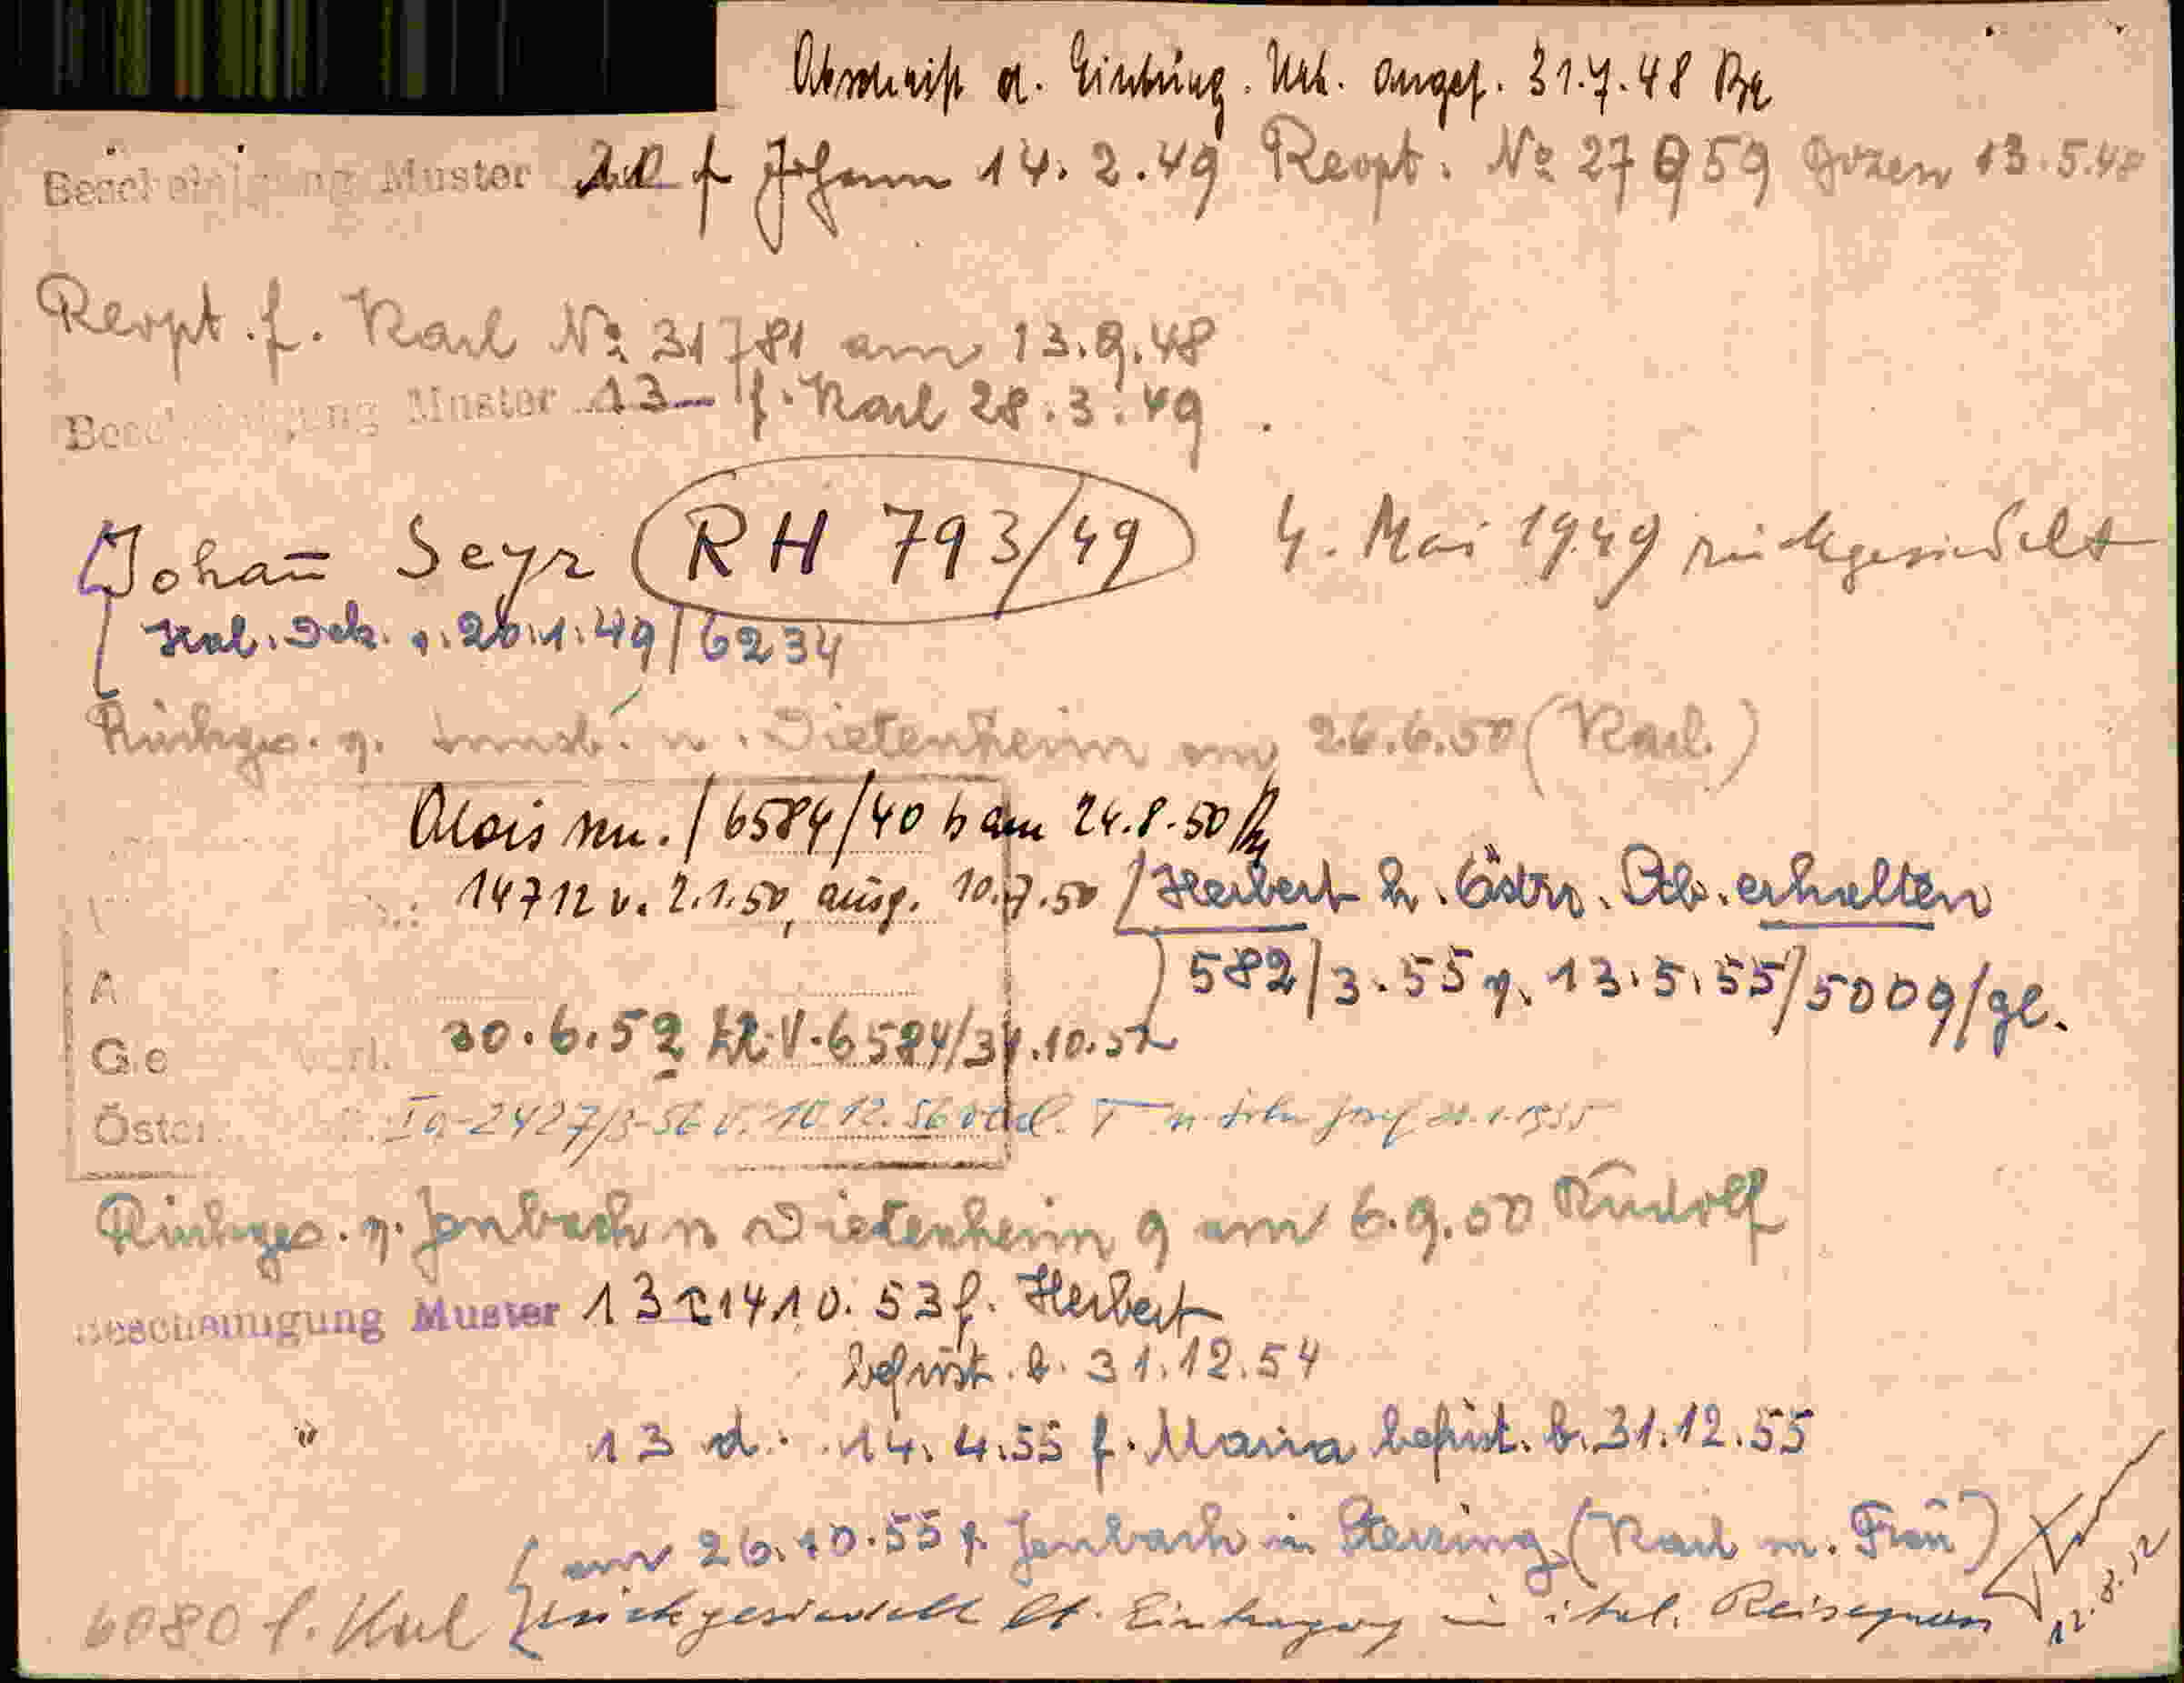 Abschrift d. Einbürg. Urk. angef. 31.7.48
Bescheinigung Muster f Johann 14. 2. 49 Reopt. № 27959 Bozen 13.5.48
Reopt. f. Karl № 31781 am 13.9.48
Bescheinigung Muster 13 f. Karl 28.3.49
Johan̄ Seyr RH 793/49 4. Mai 1949 rückgesiedelt
Ital. Dek. v. 26.1.49/6234
Rückges. v. Innsb. n. Dietenheim am 26.6.50 (Karl)
Alois sen. / 6584/40 b am 24.8.50
14712 v. 2.1.50, ausg. 10.7.50 / Herbert h. Östr. Stb. erhalten
582/3.55 v. 13.5.55/5009/gl.
A
Ge verl. 30.6.52 V-6584/31.10.52
Öster. Ia-2427/3-56 v. 10.12.56
Rückges. v. Jenbach n Dietenheim 9 am 6.9.50 Rudolf
Bescheinigung Muster 13 14 10. 53 f. Herbert
befrist. b. 31.12.54
" 13 d. 14. 4.55 f. Maria befrist. b. 31.12.55
am 26.10.55 v. Jenbach in Sterzing (Karl m. Frau)
6080 f. Karl rückgesiedelt lt. Eintragung in ital. Reisepass